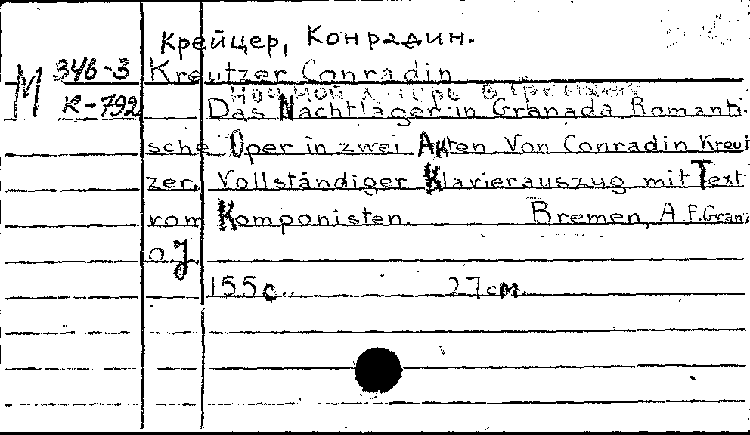 Крейцер, Конрадин.
М 346-3 Kreutzer Conradin
K-792 Das Nachtlager in Granada Romanti-
sche Oper in zwei Akten Von Conradin Kreut
zer. Vollständiger Klavierauszug mit Text
vom Komponisten. Bremen, A.F.Cranz
o.J.
155 c. 27 см